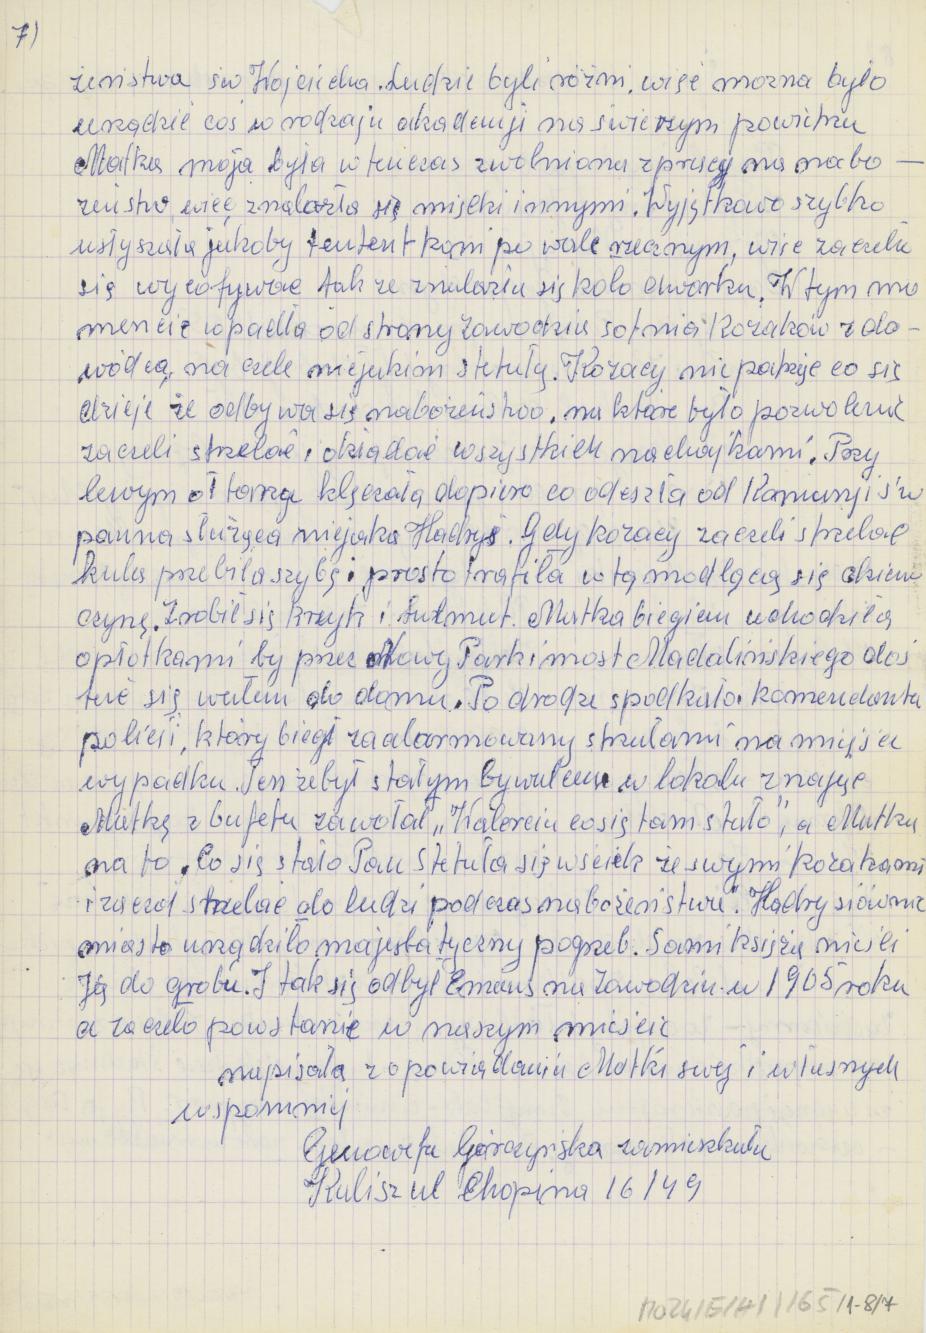 7)
żeństwa św Wojciecha. Ludzie byli różni, więc można było
urządzić coś w rodzaju akademji na świerzym powietrzu
Matka moja była wtenczas zwolniona z pracy na nabo —
żeństwo więc znalazła się między innymi. Wyjątkowo szybko
usłyszała jakoby tentent koni po wale rzecznym, więc zaczeła
się wycofywać tak że znalazła się koło dworku. W tym mo
mencie wpadła od strony Zawodzia sotnia Kozaków z do –
wódcą na czele niejakim Sztetułą. Kozacy nie patrząc co się
dzieje że odbywa się nabożeństwo, na które było pozwolenie
zaczeli strzelać i okładać wszystkich nachajkami. Przy
lewym ołtarzu klęczała dopiero co odeszła od Komunji św
panna służąca niejaka Hadryś. Gdy kozacy zaczeli strzelać
kula przebiła szybę i prosto trafiła w tą modlącą się dziew
czynę. Zrobił się krzyk i tulmut. Matka biegiem uchodziła
opłotkami by przez Nowy Park i most Madalińskiego dos
tać się wałem do domu. Po drodze spodkała komendanta
policji, który biegł zaalarmowany strzałami na miejsce
wypadku. Ten że był stałym bywalcem w lokalu znając
Matkę z bufetu zawołał „Walerciu co się tam stało", a Matka
na to „Co się stało Pan Sztetuła się wściek ze swymi kozakami
i zaczoł strzelać do ludzi podczas nabożeństwa". Hadrysiównie
miasto urządziło majestatyczny pogrzeb. Sami księża nieśli
Ją do grobu. I tak się odbył Emaus na Zawodziu w 1905 roku
a zaczeło powstanie w naszym mieście
napisała z opowiadania Matki swej i własnych
wspomnij
Genowefa Górczyńska zamieszkała
Kalisz ul Chopina 16/49
/1-8/7